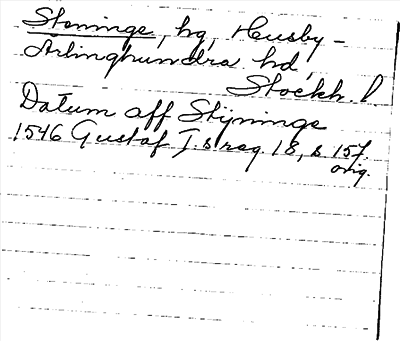 Steninge, hg, Husby-
Ärlinghundra hd,
Stockh. l
Datum aff Stÿninge
1546 Gustaf I:s reg. 18, s 157.
orig.